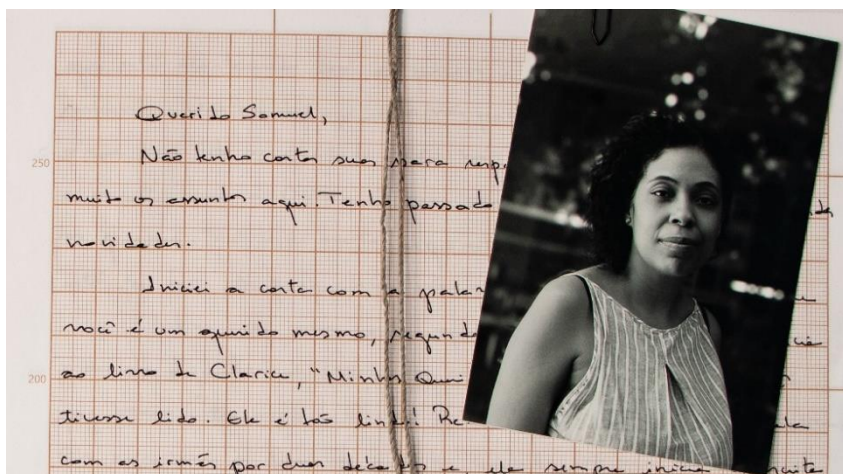 Querido Samuel,
250
Não tenho cartas suas para resp
muito os assuntos aqui. Tenho passado
novidades.
Iniciei a carta com a pala
você é um querido mesmo, segundo
200
ao livro de Clarice, "Minhas Queri
tivesse lido. Ele é tão lindo! Re
com as irmãs por duas décadas e, ela sempre